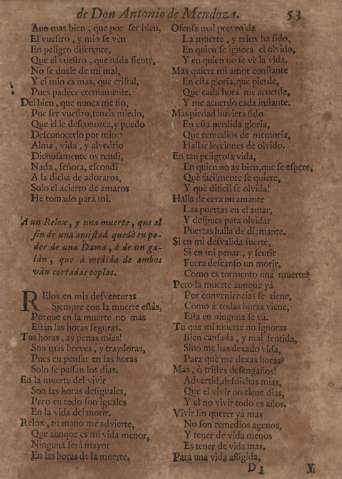 de Don Antonio de Mendoza. 53
Aun mas bien, que por ser bien,
El vuestro, y mio se ven
En peligro diferente,
Que el vuestro, que nada siente,
No se duele de mi mal,
Y el mio es mas, que cristal,
Pues padece eternamente.
Del bien, que nunca me fio,
Por ser vuestro, tengo miedo,
Que èl le desconozca, y puedo
Desconocerlo por mio:
Alma, vida, y alvedrio
Dichosamente os rendì,
Nada, señora, escondì
A la dicha de adoraros,
Solo el acierto de amaros
He tomado para mi.
A un Relox, y una muerte, que al
fin de una amistad quedò en po-
der de una Dama, ò de un ga-
làn, que à medida de ambos
vàn cortadas coplas.
RElox en mis desventuras
Siempre con la muerte estàs,
Porque en la muerte no mas
Estàn las horas seguras.
Tus horas, ay penas mias!
Son mas breves, y traydoras,
Pues en pensar en las horas
Solo se passan los dias.
En la muerte del vivir
Son las horas desiguales,
Pero en todo son iguales
En la vida del morir.
Relox, tu mano me advierte,
Que aunque es mi vida menor,
Ninguna serà mayor
En las horas de la muerte.
Ofensa mal prevenida
La muerte, y relox ha sido,
En quien se ignora el olvido,
Y en quien no se vè la vida.
Mas quiere mi amor constante
En esta gloria, que pierde,
Que cada hora me acuerde,
Y me acuerde cada instante.
Mas piedad huviera sido
En esta perdida gloria,
Que remedios de memoria,
Hallar lecciones de olvido.
En tan peligrosa vida,
En quien no ay bien, que se espere,
Què facilmente se quiere,
Y què dificil se olvida!
Halla de cera mi amante
Las puertas en el amar,
Y despues para olvidar
Puertas halla de diamante.
Si en mi desvalida suerte,
Si en mi penar, y sentir
Fuera descanso un morir,
Como es tormento una muerte?
Pero la muerte aunque yà
Por conveniencias se tiene,
Como à todas horas viene,
Esta en ninguna se và.
Tu que mi muerte no ignoras
Bien cansada, y mal sentida,
Sino me has dexado vida,
Para què me dexas horas?
Mas, ò tristes desengaños!
Advertid, desdichas mias,
Que el vivir no tiene dias,
Y el no vivir todo es años.
Vivir sin querer yà mas
No son remedios agenos,
Y tener de vida menos
Es tener de vida mas.
Para una vida afligida,
D 3 Y